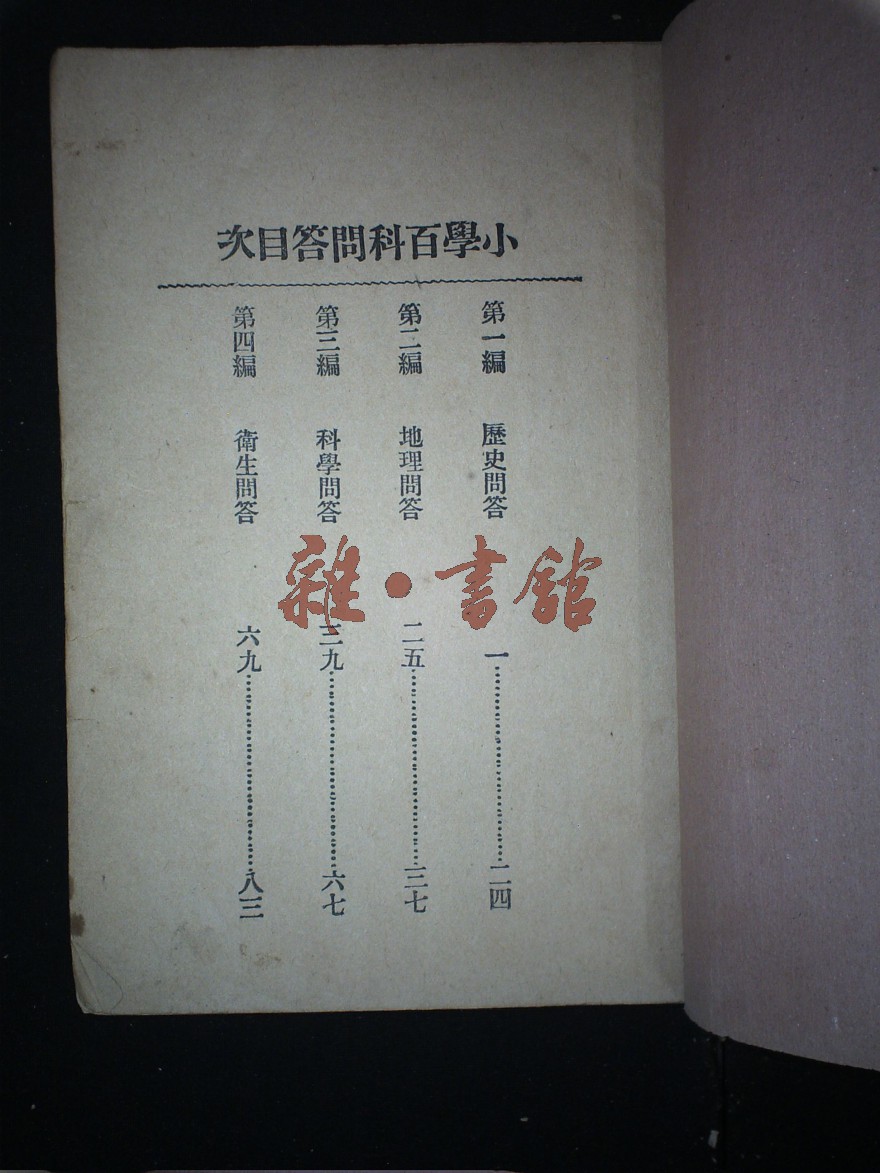 小學百科問答目次
第一編 歷史問答 一……………二四
第二編 地理問答 二五……………三七
第三編 科學問答 三九……………六七
第四編 衛生問答 六九……………八三
雜·書館